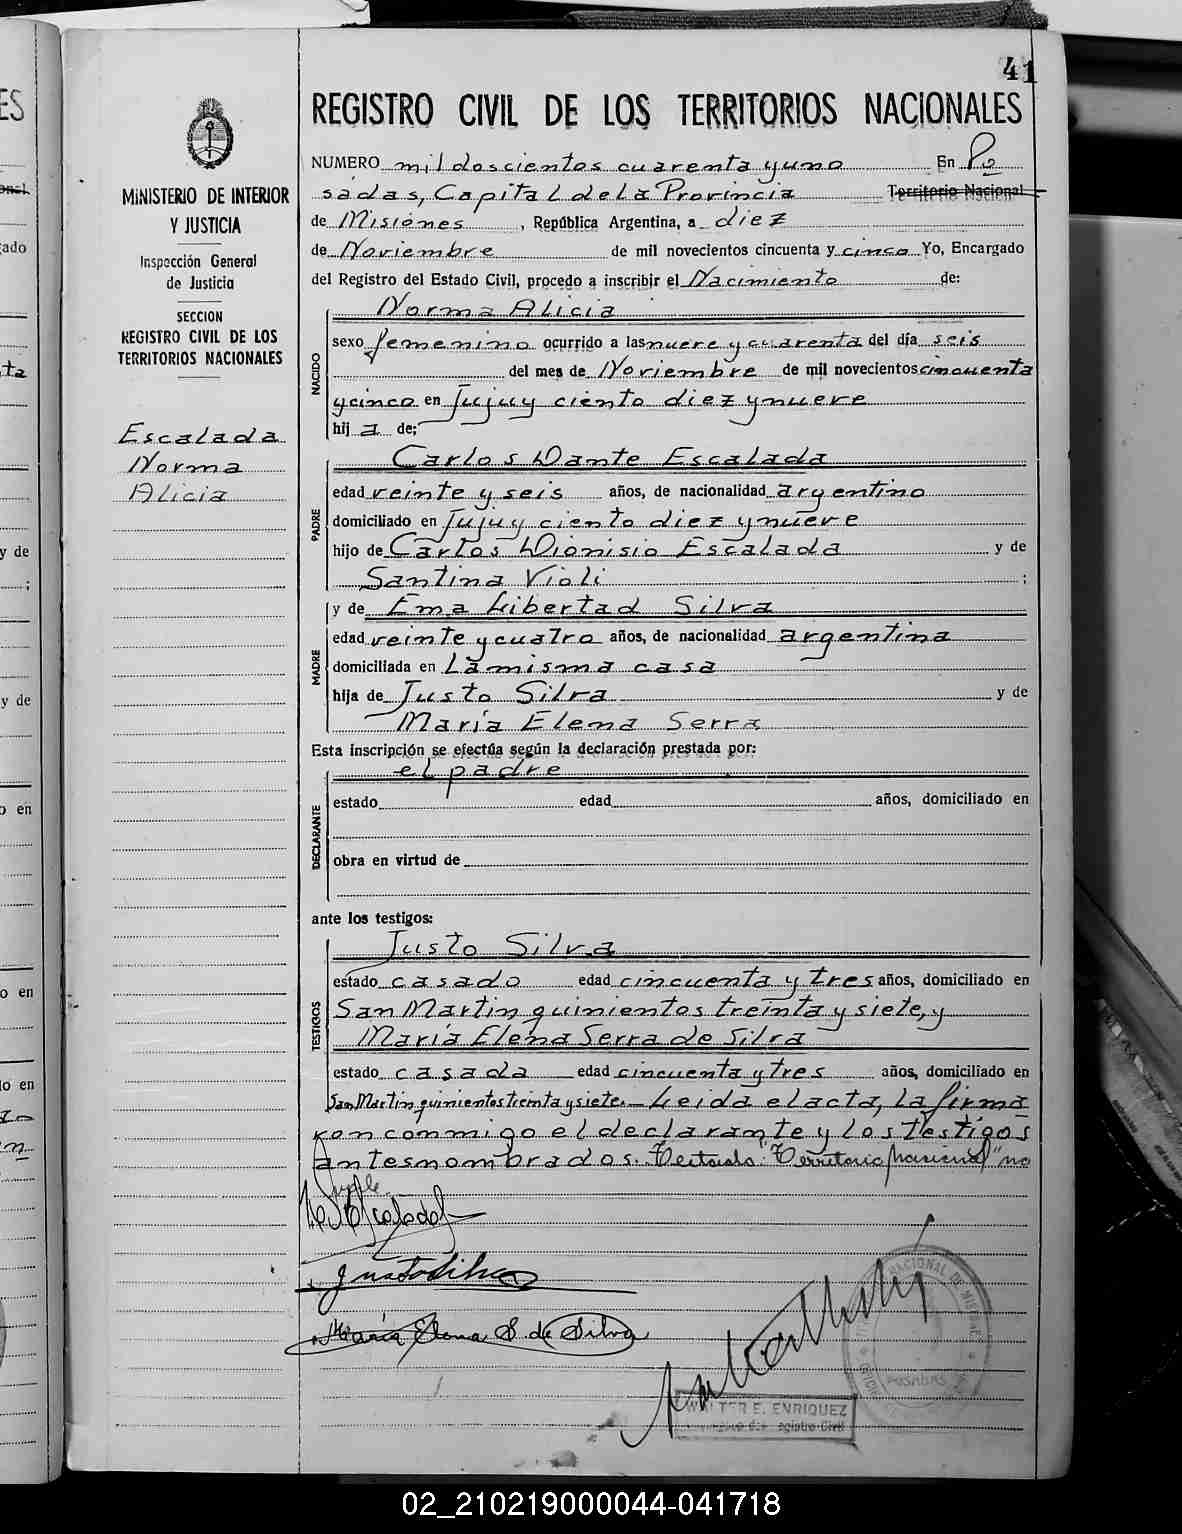 41
REGISTRO CIVIL DE LOS TERRITORIOS NACIONALES
MINISTERIO DE INTERIOR
Y JUSTICIA
Inspección General
de Justicia
SECCION
REGISTRO CIVIL DE LOS
TERRITORIOS NACIONALES
Escalada
Norma
Alicia
NUMERO mil doscientos cuarenta y uno En Po
sadas, Capital de la Provincia Territorio Nacional
de Misiones, República Argentina, a diez
de Noviembre de mil novecientos cincuenta y cinco Yo, Encargado
del Registro del Estado Civil, procedo a inscribir el Nacimiento de:
Norma Alicia
NACIDO
sexo femenino ocurrido a las nueve y cuarenta del día seis
del mes de Noviembre de mil novecientos cincuenta
y cinco en Jujuy ciento diez y nueve
hij a de:
Carlos Dante Escalada
PADRE
edad veinte y seis años, de nacionalidad argentino
domiciliado en Jujuy ciento diez y nueve
hijo de Carlos Dionisio Escalada y de
Santina Violi ;
y de Ema Libertad Silva
MADRE
edad veinte y cuatro años, de nacionalidad argentina
domiciliada en La misma casa
hija de Justo Silva y de
María Elena Serra
Esta inscripción se efectúa según la declaración prestada por:
el padre
DECLARANTE
estado edad años, domiciliado en
obra en virtud de
ante los testigos:
Justo Silva
TESTIGOS
estado casado edad cincuenta y tres años, domiciliado en
San Martin quinientos treinta y siete, y
María Elena Serra de Silva
estado casada edad cincuenta y tres años, domiciliado en
San Martin quinientos treinta y siete.- Leida el acta, La firma
ron conmigo el declarante y los testigos
antesnombrados. Testado: "Territorio Nacional" no
vale.
Justo Silva
María Elena S. de Silva
WALTER E. ENRIQUEZ
POSADAS
02_210219000044-041718